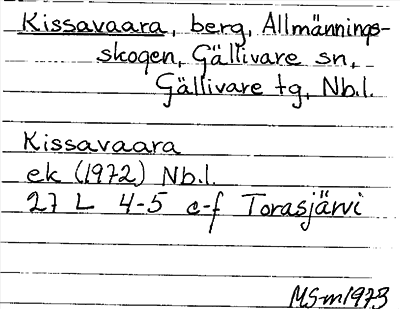 Kissavaara, berg, Allmännings-
skogen, Gällivare sn,
Gällivare tg, Nb.l.
Kissavaara
ek (1972) Nb.l.
27 L 4-5 e-f Torasjärvi
MS-m1973